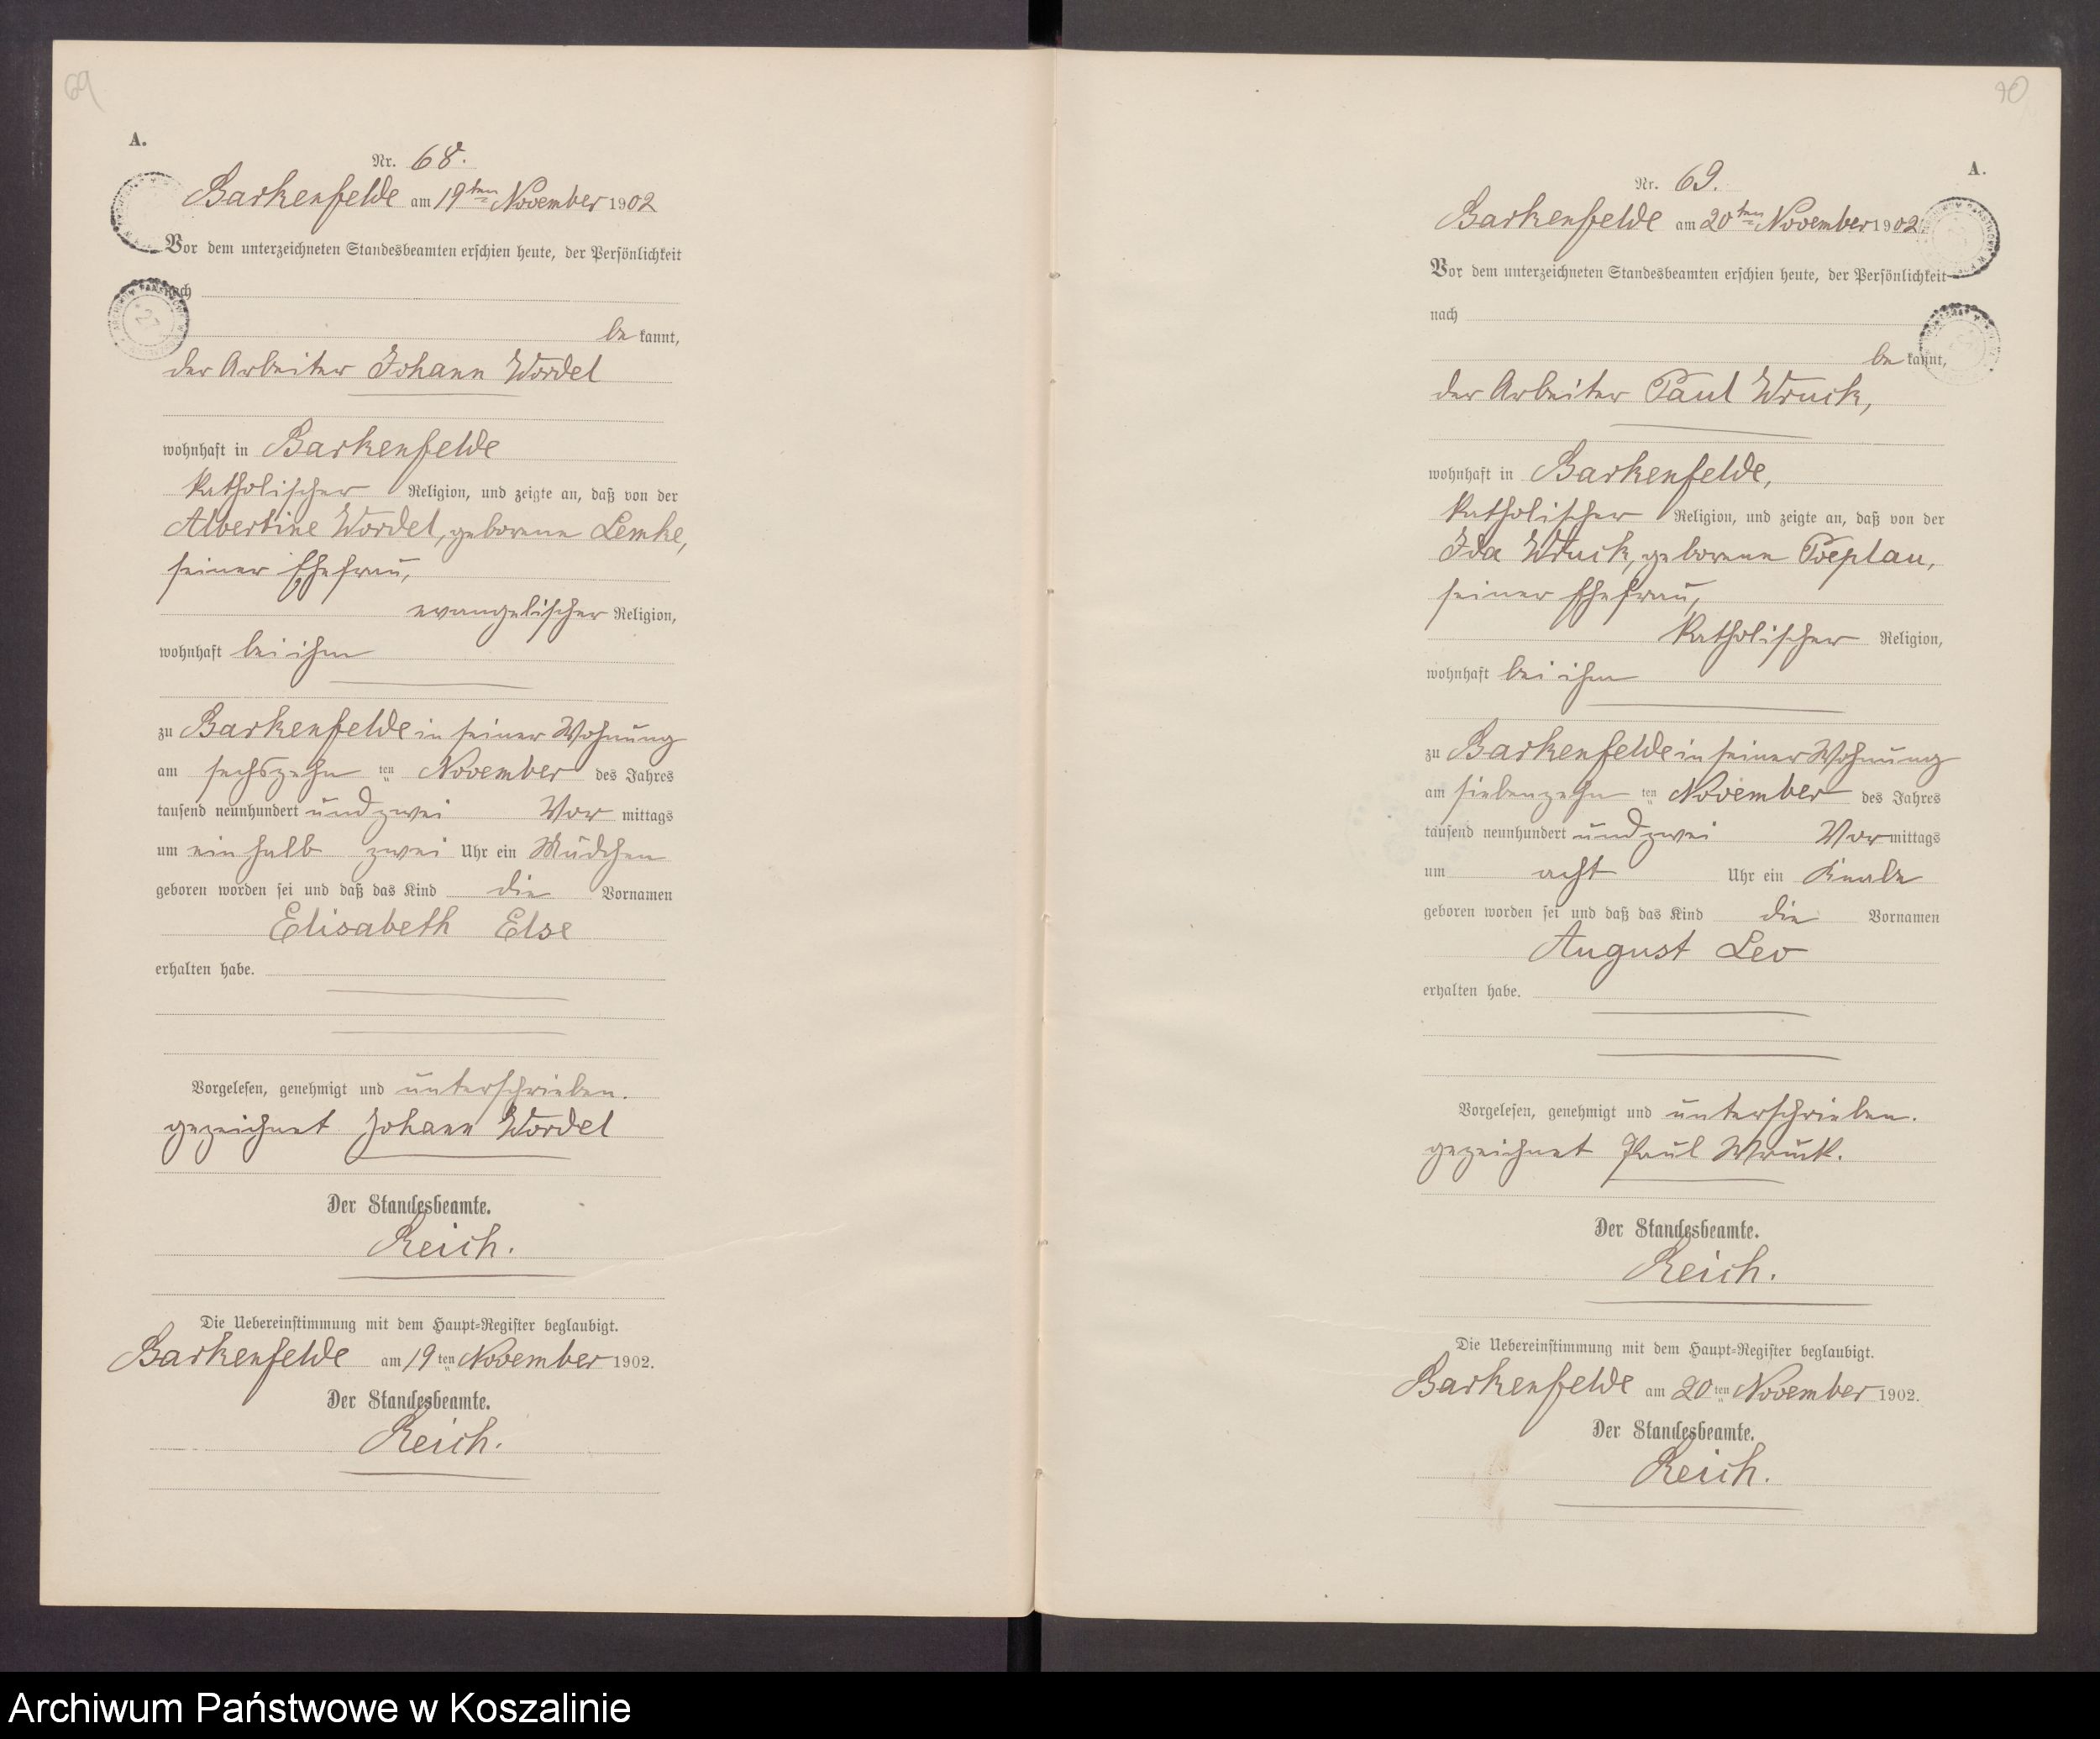 69
A.
Nr. 68.
Barkenfelde am 19ten November 1902
Vor dem unterzeichneten Standesbeamten erschien heute, der Persönlichkeit
nach
be kannt,
der Arbeiter Johann Wordel
wohnhaft in Barkenfelde
katholischer Religion, und zeigte an, daß von der
Albertine Wordel, geborene Lemke,
seiner Ehefrau,
evangelischer Religion,
wohnhaft bei ihm
zu Barkenfelde in seiner Wohnung
am sechszehn ten November des Jahres
tausend neunhundert und zwei Vor mittags
um ein halb zwei Uhr ein Mädchen
geboren worden sei und daß das Kind die Vornamen
Elisabeth Else
erhalten habe.
Vorgelesen, genehmigt und unterschrieben.
gezeichnet Johann Wordel
Der Standesbeamte.
Reich.
Die Uebereinstimmung mit dem Haupt-Register beglaubigt.
Barkenfelde am 19 ten November 1902.
Der Standesbeamte.
Reich.
70
A.
Nr. 69.
Barkenfelde am 20ten November 1902
Vor dem unterzeichneten Standesbeamten erschien heute, der Persönlichkeit
nach
be kannt,
der Arbeiter Paul Wruck,
wohnhaft in Barkenfelde,
katholischer Religion, und zeigte an, daß von der
Ida Wruck, geborene Poeplau,
seiner Ehefrau,
katholischer Religion,
wohnhaft bei ihm
zu Barkenfelde in seiner Wohnung
am siebenzehn ten November des Jahres
tausend neunhundert und zwei Vor mittags
um acht Uhr ein Knabe
geboren worden sei und daß das Kind die Vornamen
August Leo
erhalten habe.
Vorgelesen, genehmigt und unterschrieben.
gezeichnet Paul Wruck.
Der Standesbeamte.
Reich.
Die Uebereinstimmung mit dem Haupt-Register beglaubigt.
Barkenfelde am 20 ten November 1902.
Der Standesbeamte.
Reich.
Archiwum Państwowe w Koszalinie